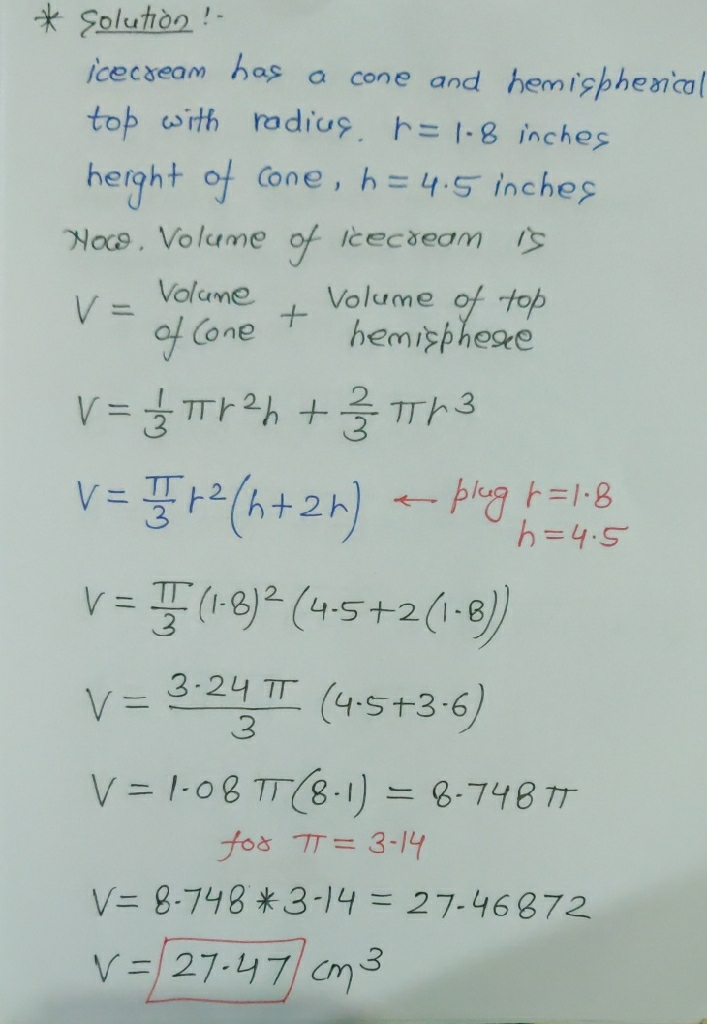 * Solution :-
icecream has a cone and hemispherical
top with radius. r = 1.8 inches
height of cone, h = 4.5 inches
Now. Volume of icecream is
V = Volume of Cone + Volume of top hemisphere
V = 1/3 πr²h + 2/3 πr³
V = π/3 r²(h+2r) ← plug r = 1.8
h = 4.5
V = π/3 (1.8)² (4.5+2(1.8))
V = 3.24 π/3 (4.5+3.6)
V = 1.08 π(8.1) = 8.748 π
for π = 3.14
V = 8.748 * 3.14 = 27.46872
V = 27.47 cm³